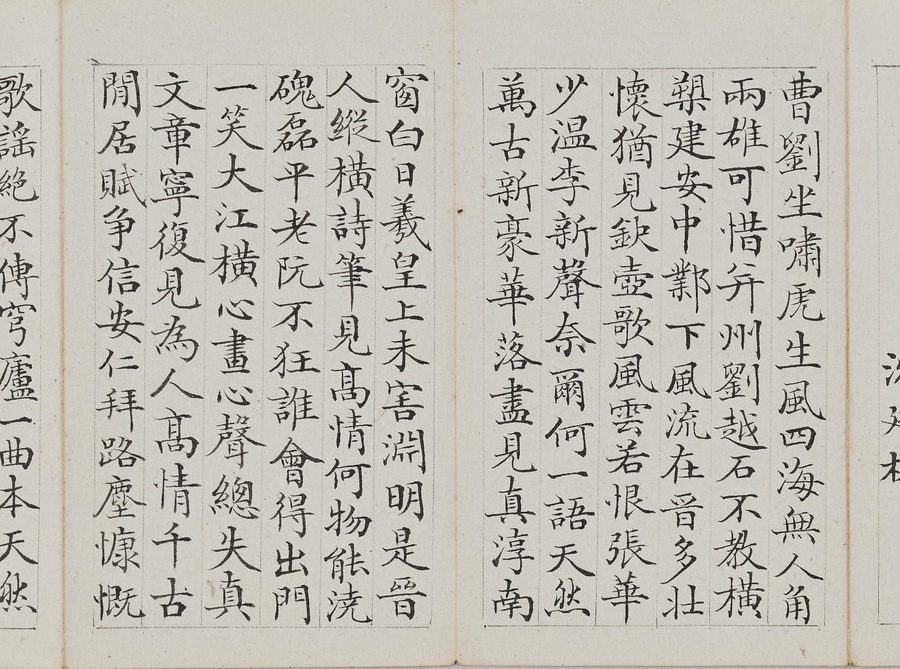 曹劉坐嘯虎生風四海無人角
兩雄可惜并州劉越石不教橫
槊建安中鄴下風流在晉多壯
懷猶見缺壺歌風雲若恨張華
少温李新聲奈爾何一語天然
萬古新豪華落盡見真淳南
窗白日羲皇上未害淵明是晉
人縱橫詩筆見高情何物能澆
磈磊平老阮不狂誰會得出門
一笑大江橫心畫心聲總失真
文章寧復見為人高情千古
閒居賦爭信安仁拜路塵慷慨
歌謠絕不傳穹廬一曲本天然